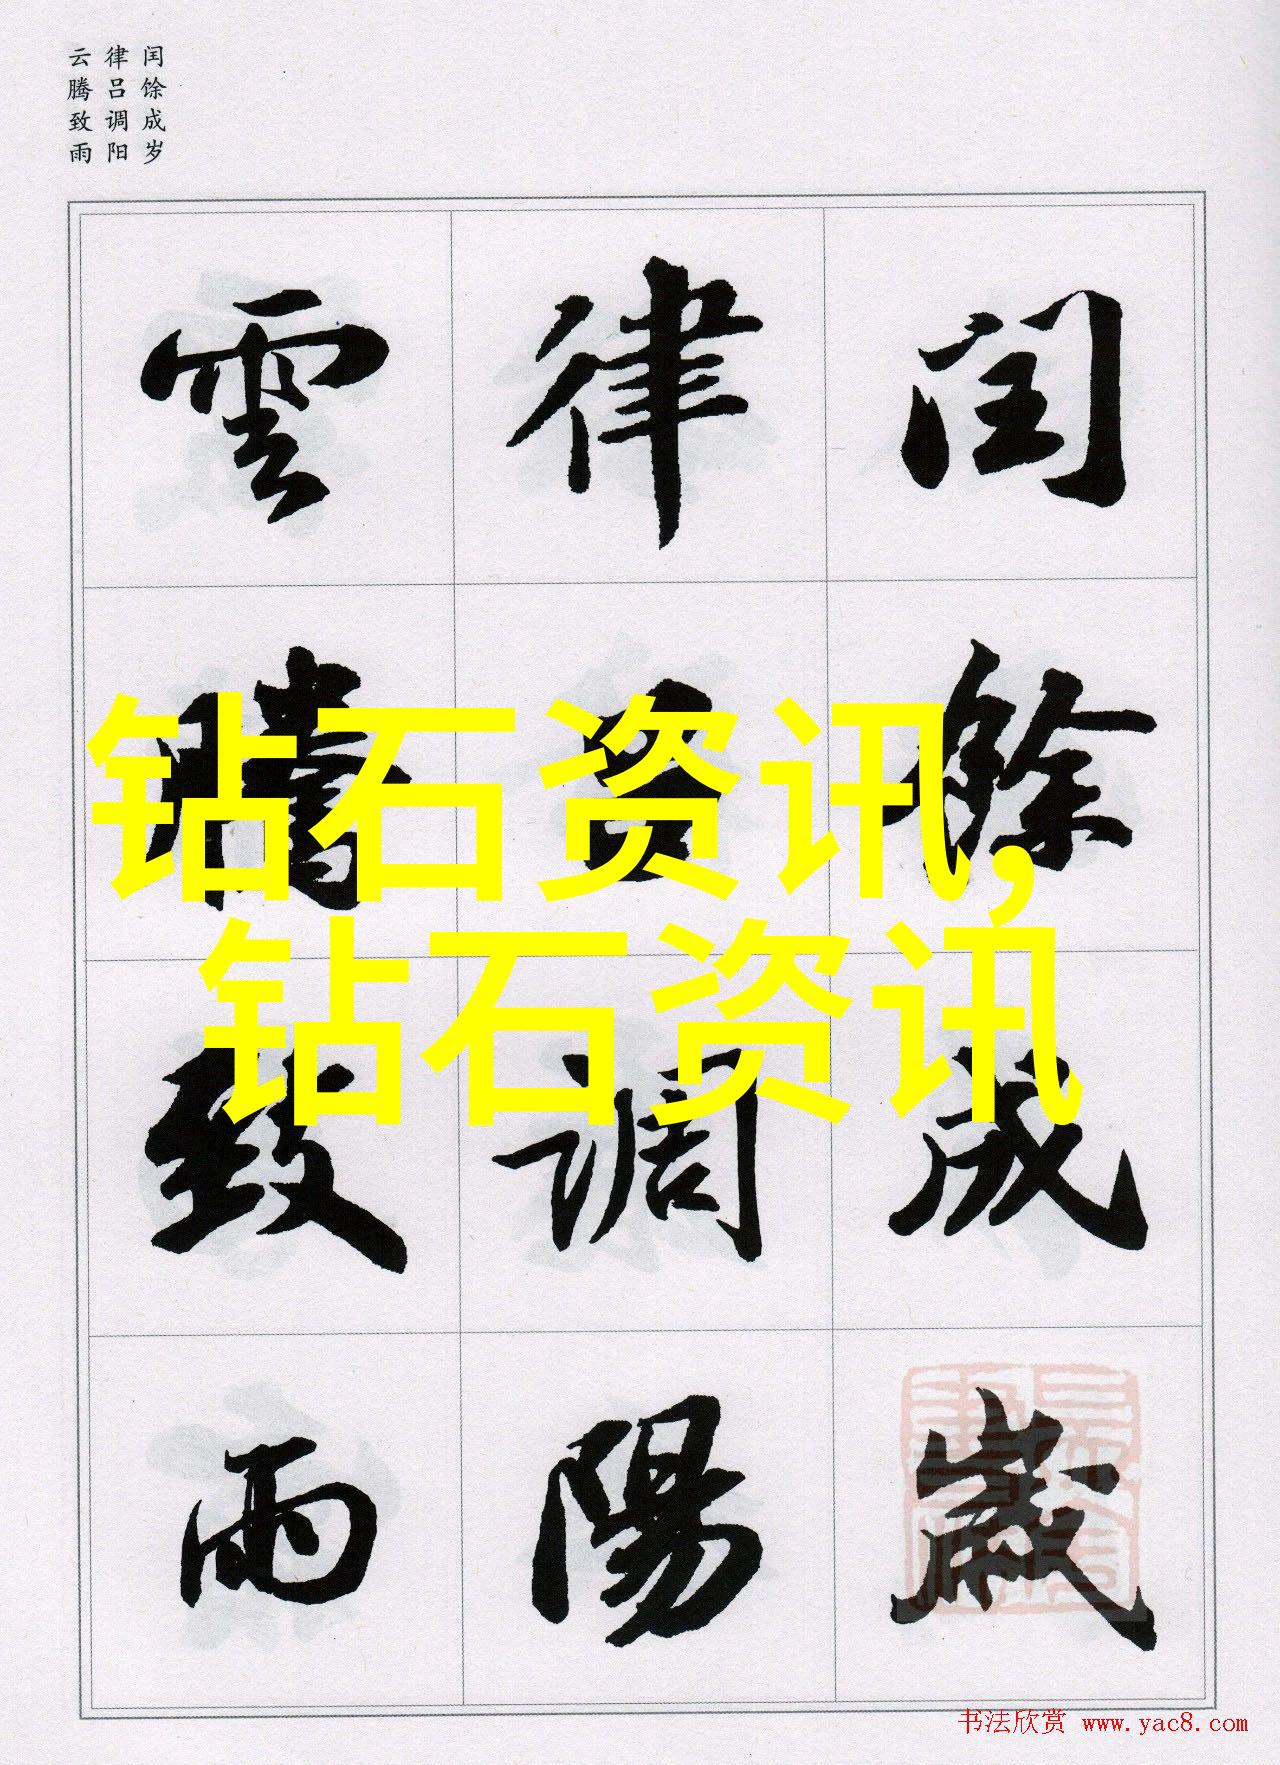 闰馀成岁
律吕调阳
云腾致雨
閏餘成歲
律呂調陽
雲騰致雨
钻石资讯,
钻石资讯
书法欣赏 www.yac8.com